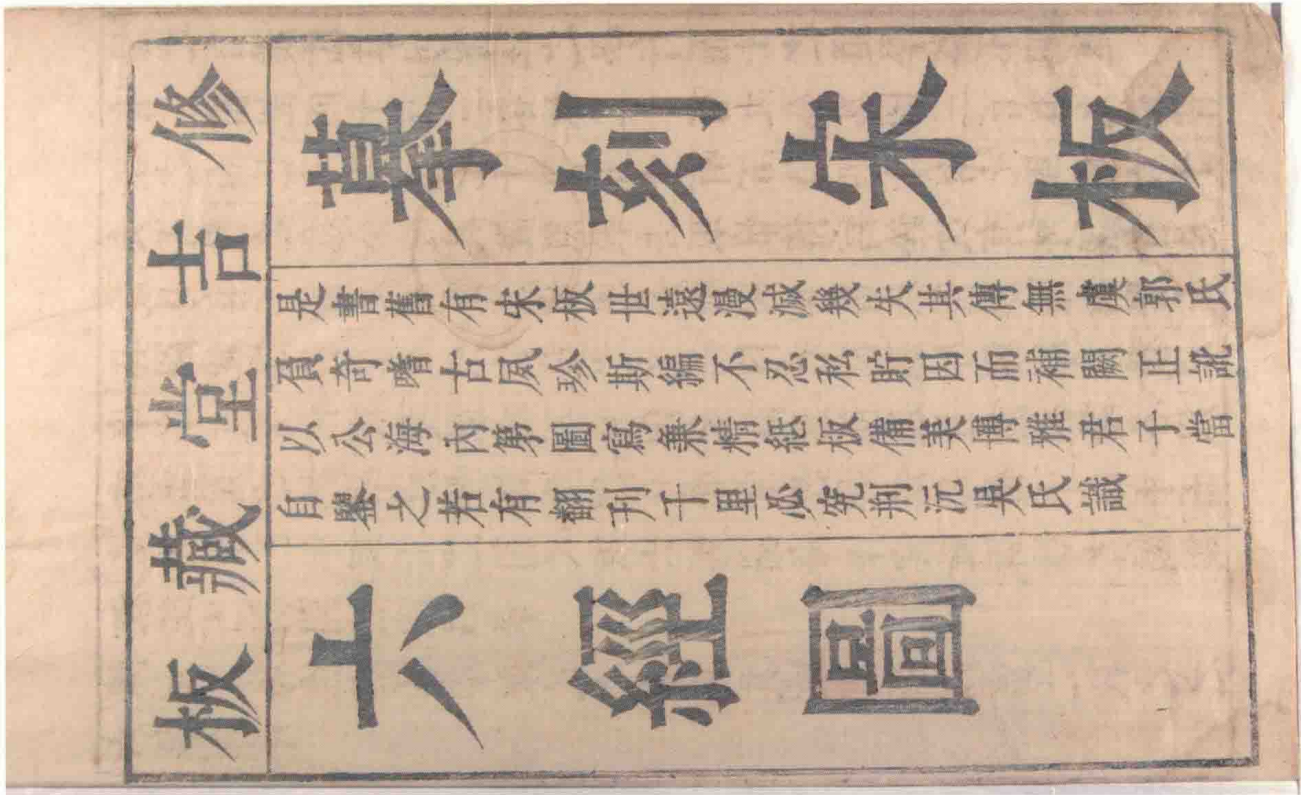 修吉堂藏板
摹刻宋板
是書舊有宋板世遠漫滅幾失其傳無虞郭氏
負奇嗜古夙珍斯編不忍私貯因而補闕正訛
以公海內第圖寫兼精紙板備美博雅君子當
自鑒之若有翻刊千里必究荊沅吳氏識
六經圖